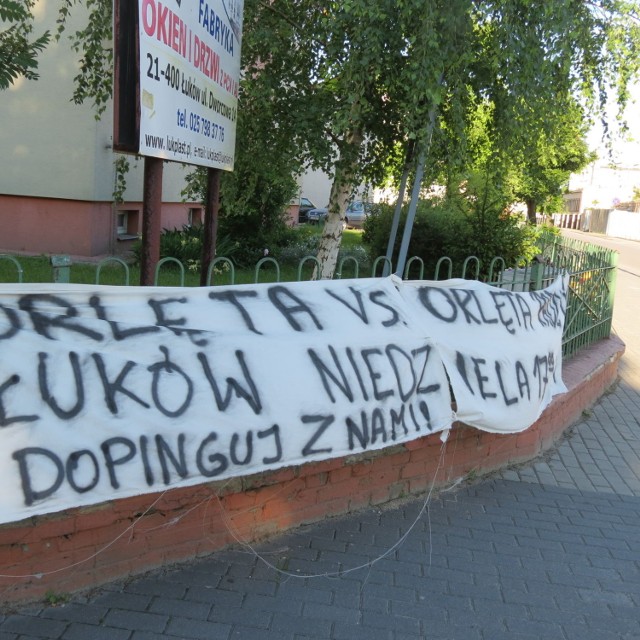 FABRYKA
OKIEN I DRZWI
21-400 Łuków ul. Dworcowa
tel. 025 798 37 76
www.lukplast.pl, e-mail:
ORLĘTA VS. ORLĘTA
ŁUKÓW NIEDZIELA 17
DOPINGUJ Z NAMI!